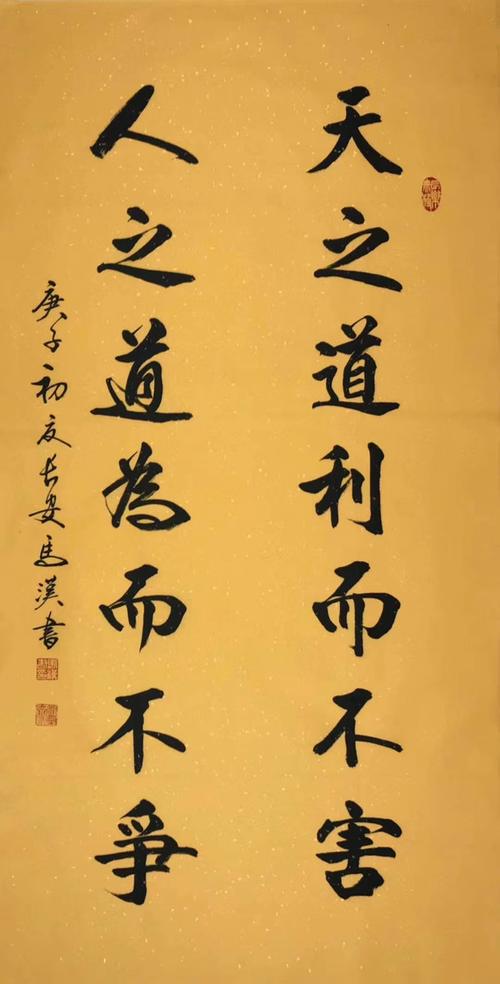 天之道利而不害
人之道為而不爭
庚子初夏長安馬漢書